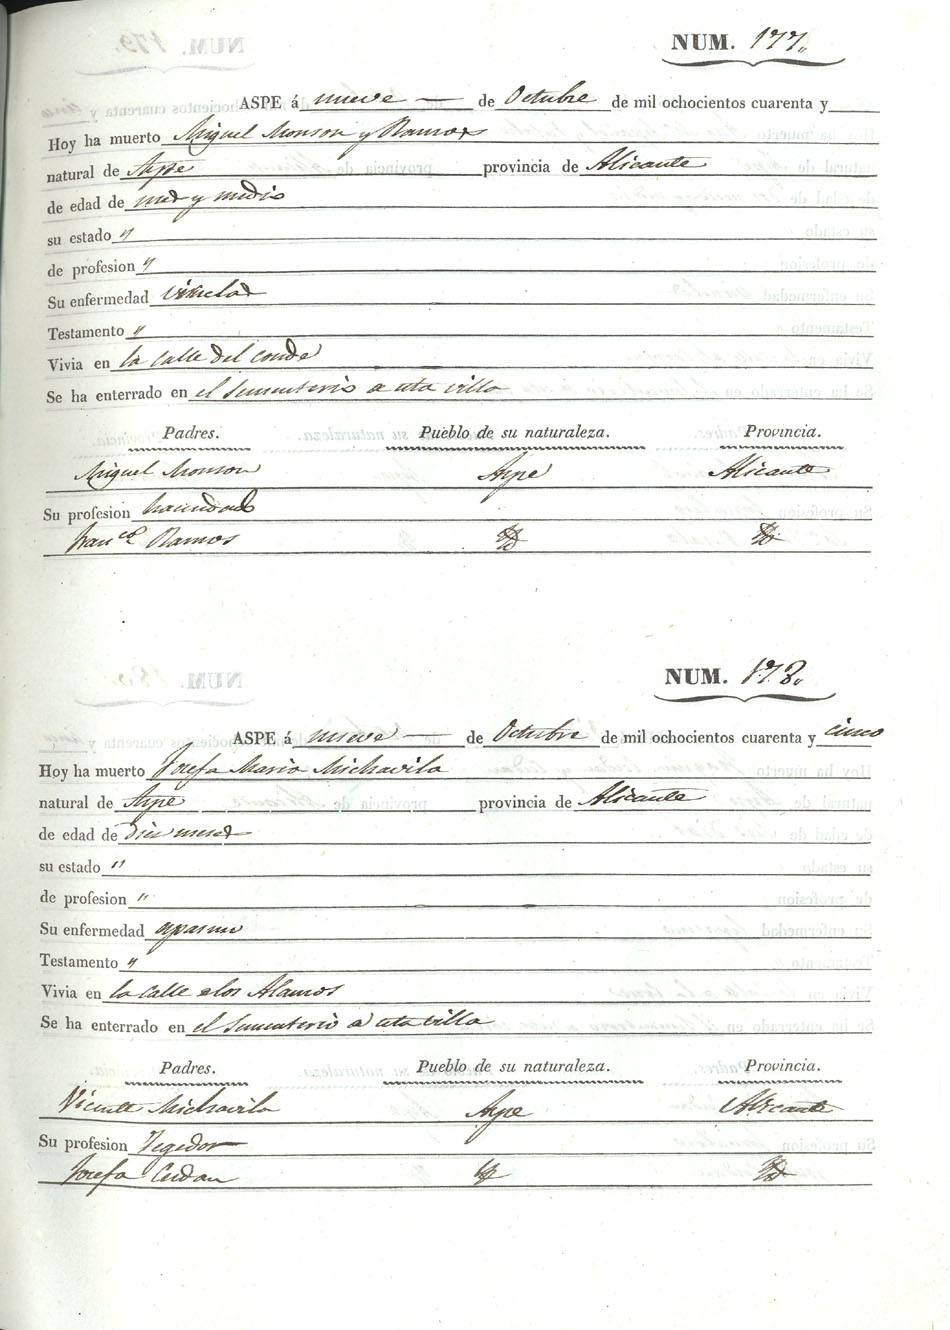 NUM. 177.
ASPE á nueve de Octubre de mil ochocientos cuarenta y
Hoy ha muerto Miguel Monson y Ramos
natural de Aspe provincia de Alicante
de edad de mes y medio
su estado "
de profesion "
Su enfermedad viruelas
Testamento "
Vivia en la Calle del conde
Se ha enterrado en el sementerio d esta villa
Padres. Pueblo de su naturaleza. Provincia.
Miguel Monson Aspe Alicante
Su profesion hacendado
Fran.ca Ramos Yd Yd
NUM. 178.
ASPE á nueve de Octubre de mil ochocientos cuarenta y cinco
Hoy ha muerto Josefa Maria Michavila
natural de Aspe provincia de Alicante
de edad de diez meses
su estado "
de profesion "
Su enfermedad
Testamento "
Vivia en la Calle elos Alamos
Se ha enterrado en el sementerio d esta villa
Padres. Pueblo de su naturaleza. Provincia.
Vicente Michavila Aspe Alicante
Su profesion Tegedor
Josefa Cerdan Yd Yd